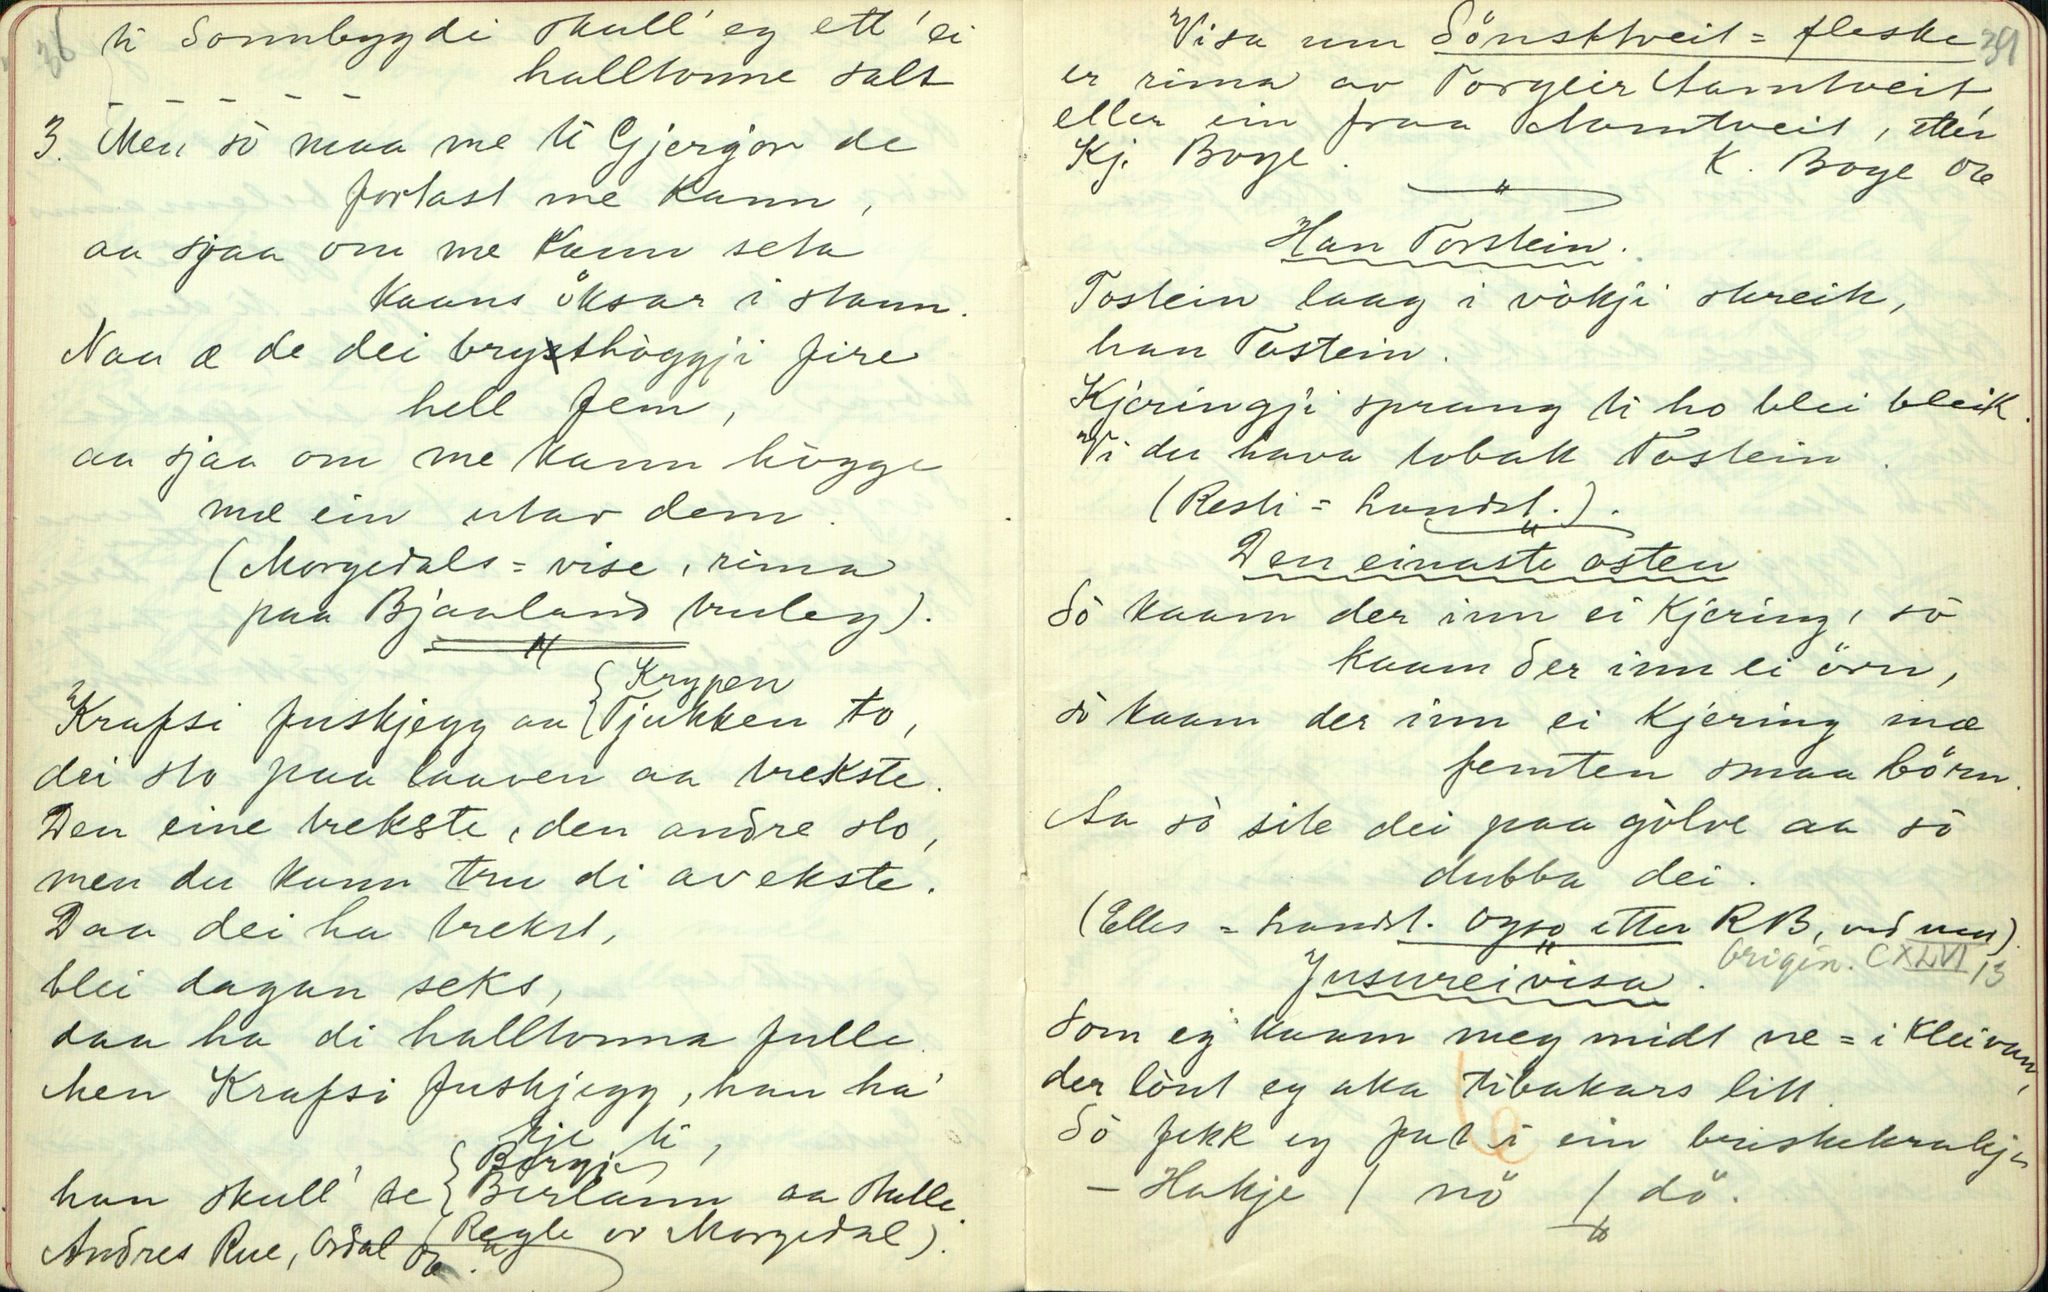 38
ti Sonnbygdi skull' eg ett' ei
halltonne salt
– – – – –
3. Men sò maa me ti Gjergjov de
fortast me kann,
aa sjaa om me kann seta
kaans öksar i stann.
Naa æ de dei brysthòggji fire
hell fem,
aa sjaa om me kann hògge
mæ ein utav dem.
(Morgedals = vise, rima
paa Bjaaland truleg).
Krypen
Krafsi Fuskjegg aa Tjukken to,
dei sto paa laaven aa trekste.
Den eine trekste, den andre slo,
men du kann tru di avekste.
Daa dei ha trekst,
blei dagan seks,
daa ha di halltonna fulle.
Men Krafsi Fuskjegg, han ha'
kje ti,
Börgje
han skull' te Berlann aa skulle.
(Regle ov Morgedal).
Andres Rue, Ordal
39
Visa um Sönsktveit = fleske
er rima av Torgeir Aamtveit,
eller ein fraa Aamtveit, etter
Kj. Boge. K. Boge
Han Torstein.
Tostein laag i vòkji skreik,
han Tostein.
Kjeringji sprang ti ho blei bleik.
Vi du hava tobak Tostein.
(Resti = Landst.).
Den einaste osten
Sò kaam der inn ei kjering, sò
kaam der inn ei örn,
sò kaam der inn ei kjering mæ
femten smaa börn.
Aa sò site dei paa gòlve aa sò
dubba dei.
(Elles = Landst. ogso etter RB, ved meg).
Origin. CXLVI/13
Jusureivisa.
Som eg kaam meg midt ne = i kleivan,
der lònt eg aka tibakars litt.
Sò fekk eg fat i ein briskekrakje
– Hakje / nö / dö.